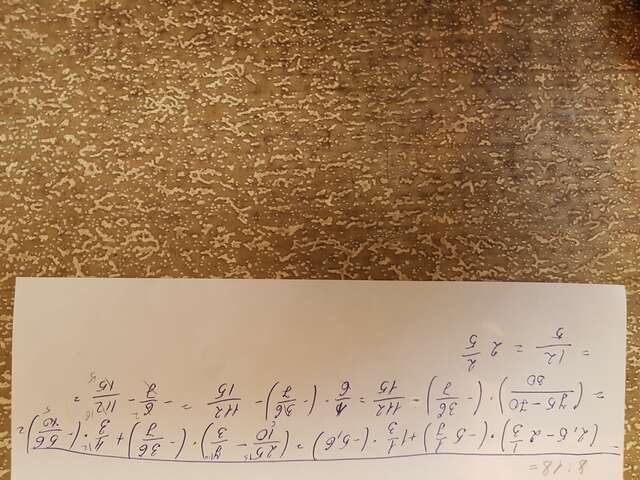 (2,5 - 2 1/3) · (-5 1/7) + 1 1/3 · (-5,6) = (25/10 - 7/3) · (-36/7) + 4/3 · (-56/10)
= (75-70/30) · (-36/7) - 112/15 = 1/6 · (-36/7) - 112/15 = -6/7 - 112/15 =
= 12/5 = 2 2/5